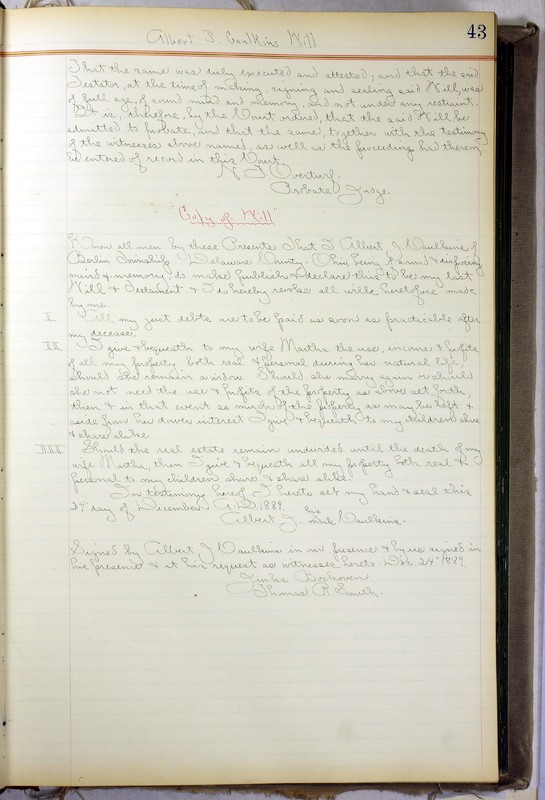 43
Albert J. Caulkins Will
That the same was duly executed and attested; and that the said
Testator, at the time of making, signing and sealing said Will, was
of full age, of sound mind and memory, and not under any restraint.
It is, therefore, by the Court ordered, that the said Will be
admitted to probate, and that the same, together with the testimony
of the witnesses above named, as well as the proceeding had thereon,
be entered of record in this Court.
N. J. Overturf.
Probate Judge.
"Copy of Will"
Know all men by these Presents That I Albert J. Caulkins of
Berlin Township Delaware County. Ohio, being of sound & disposing
mind & memory, do make publish & declare this to be my last
Will & Testament & I do hereby revoke all wills heretofore made
by me.
I. All my just debts are to be paid as soon as practicable after
my decease.
II. I give & bequeath to my wife Martha the use, income & profits
of all my property both real & personal during her natural life
Should she remain a widow. Should she marry again or should
she not need the use & profits of the property as above set forth,
then & in that event so much of the property as may be left &
aside from her dower interest I give & bequeath to my children share
& share alike
III. Should the real estate remain undivided until the death of my
wife Martha, then I give & bequeath all my property both real &
personal to my children share & share alike.
In testimony hereof I hereto set my hand & seal this
24" day of December A.D. 1889.
Albert J. his mark Caulkins.
Signed by Albert J Caulkins in our presence & by us signed in
his presence & at his request as witnesses hereto Dec. 24" 1889.
Bockoven
Thomas R. Smith.